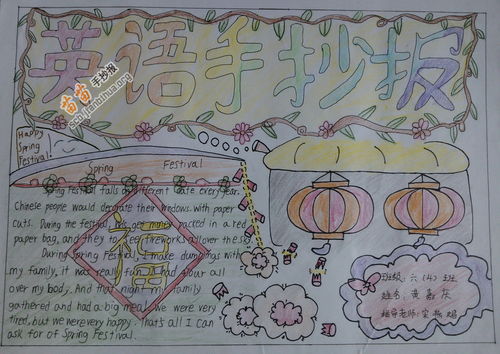 英语手抄报
Happy
Spring
Festival!
Spring Festival
Spring Festival falls on different date every year.
Chinese people would decorate their windows with paper
cuts. During the festival, we get money packed in a red
paper bag, and they to see fireworks all over the sky.
During Spring Festival, I make dumplings with
my family, it was really fun. I had flour all
over my body. And that night my family
gathered and had a big meal. We were very
tired, but we were very happy. That's all I can
ask for of Spring Festival.
福
班级: 六(4)班
姓名: 黄
指导老师:
手抄报